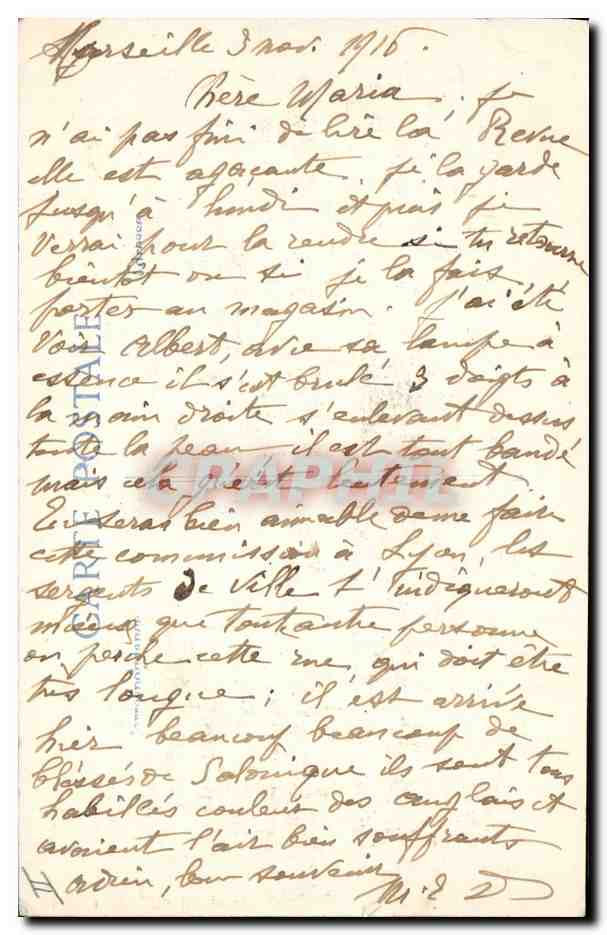 Marseille 3 nov. 1916.
Chère Maria, je
n'ai pas fini de lire la Revue
elle est agaçante, je la garde
jusqu'à lundi et puis je
verrai pour la rendre si tu retourne
bientôt ou si je la fais
porter au magasin. J'ai été
voir Albert, avec sa lampe à
essence il s'est brulé 3 doigts à
la main droite s'enlevant dessus
toute la peau il est tout bandé
mais cela guérit lentement.
Tu seras bien aimable de me faire
cette commission à Lyon, les
sergents de ville t'indiqueront
mieux que toute autre personne
où perche cette rue, qui doit être
très longue; il est arrivé
hier beaucoup beaucoup de
blessés de Salonique ils sont tous
habillés couleur des anglais et
avaient l'air bien souffrants
adieu, bon souvenir
M. E
II
CARTE POSTALE
CPAPHIL